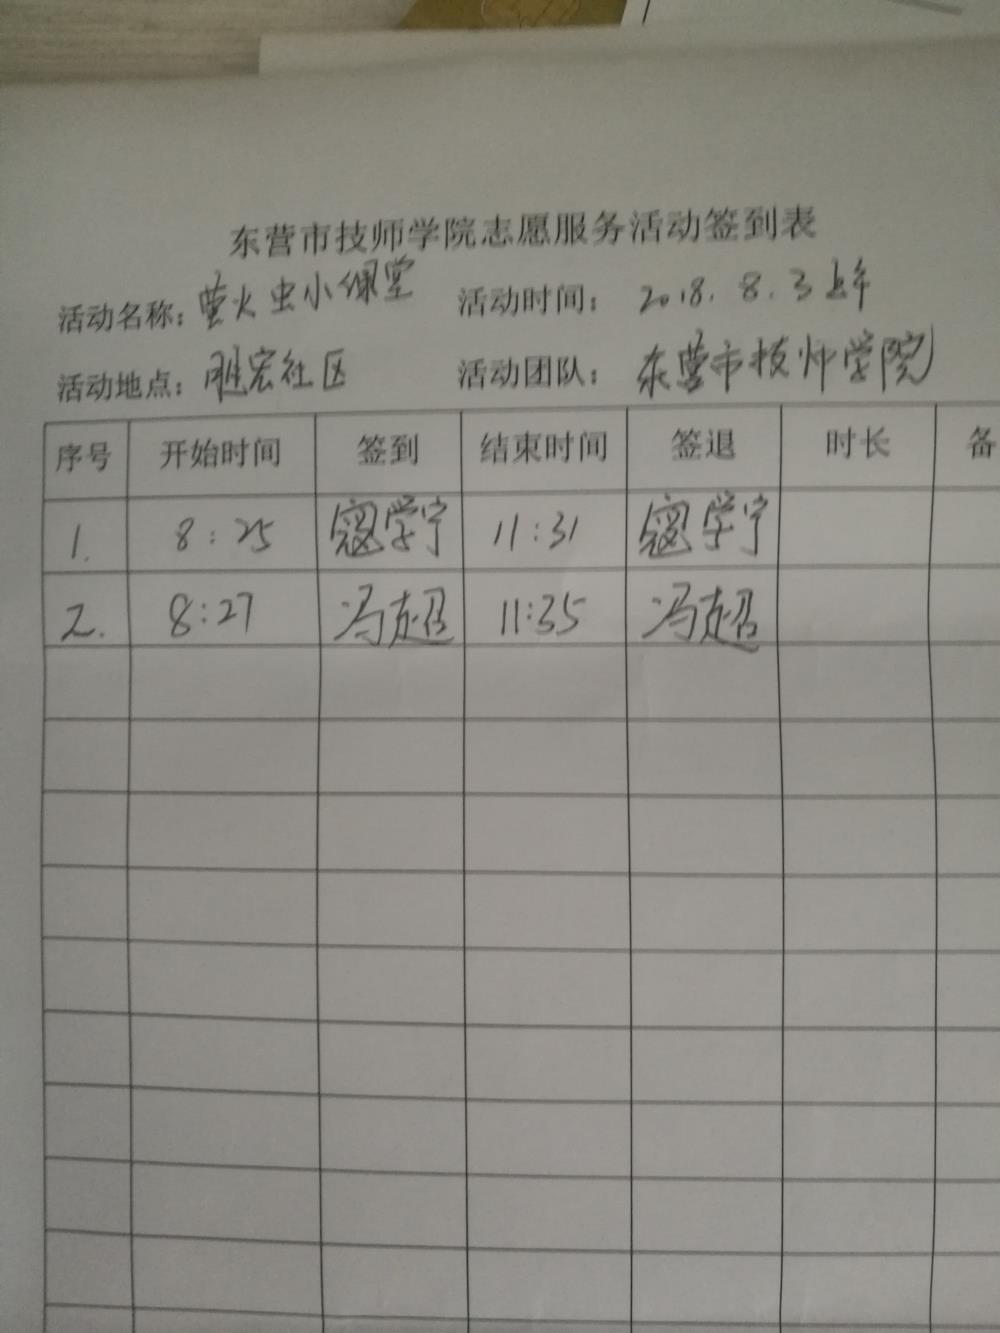 东营市技师学院志愿服务活动签到表
活动名称：萤火虫小课堂 活动时间：2018.8.3上午
活动地点：胜宏社区 活动团队：东营市技师学院
序号 开始时间 签到 结束时间 签退 时长 备
1. 8:25 寇学宁 11:31 寇学宁
2. 8:27 冯超 11:35 冯超